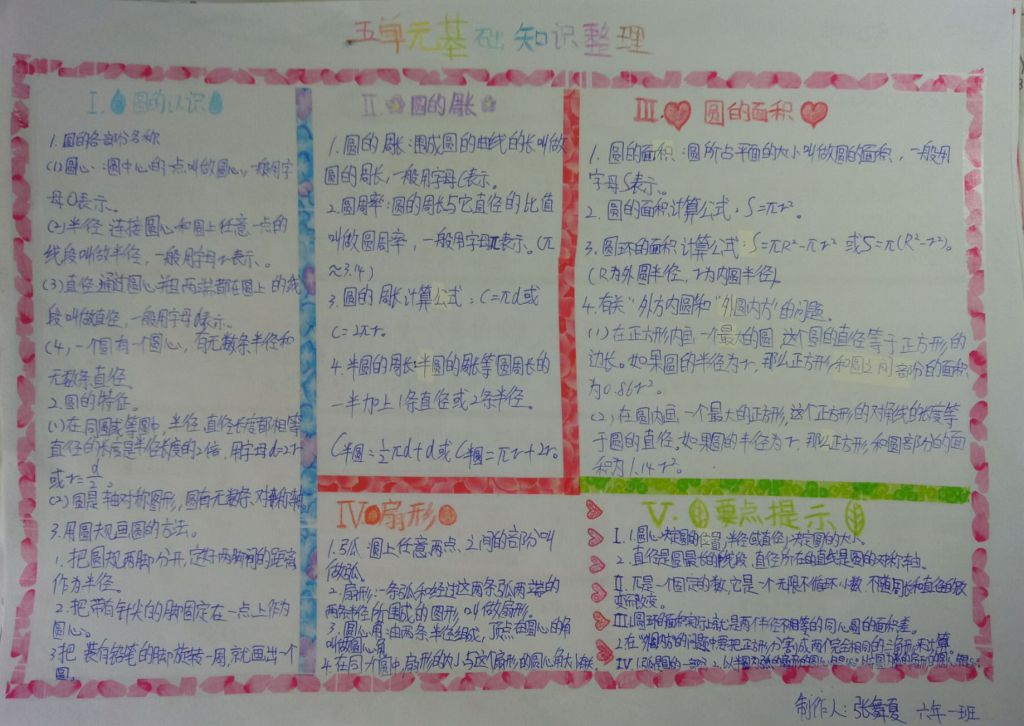 五单元基础知识整理
I. 圆的认识
1.圆的各部分名称
(1)圆心:圆中心的一点叫做圆心,一般用字
母O表示。
(2)半径:连接圆心和圆上任意一点的
线段叫做半径,一般用字母r表示。
(3)直径:通过圆心并且两端都在圆上的线
段叫做直径,一般用字母d表示。
(4)一个圆有一个圆心,有无数条半径和
无数条直径。
2.圆的特征。
(1)在同圆或等圆中,半径、直径长度都相等
直径的长度是半径长度的2倍,用字母d=2r
或r=d/2。
(2)圆是轴对称图形,圆有无数条对称轴。
3.用圆规画圆的方法。
1.把圆规两脚分开,定好两脚间的距离
作为半径。
2.把带有针尖的脚固定在一点上作为
圆心。
3把装有铅笔的脚旋转一周,就画出一个
圆。
II 圆的周长
1.圆的周长:围成圆的曲线的长叫做
圆的周长,一般用字母C表示。
2.圆周率:圆的周长与它直径的比值
叫做圆周率,一般用字母π表示。(π
≈3.14)
3.圆的周长计算公式:C=πd或
C=2πr。
4.半圆的周长:半圆的周长等圆周长的
一半加上1条直径或2条半径。
C半圆=½πd+d或C半圆=πr+2r。
III. 圆的面积
1.圆的面积:圆所占平面的大小叫做圆的面积,一般用
字母S表示。
2.圆的面积计算公式:S=πr²。
3.圆环的面积计算公式:S=πR²-πr²或S=π(R²-r²)。
(R为外圆半径,r为内圆半径)。
4.有关“外方内圆和“外圆内方”的问题。
(1)在正方形内画一个最大的圆,这个圆的直径等于正方形的
边长。如果圆的半径为r,那么正方形和圆之间部分的面积
为0.86r²。
(2)在圆内画一个最大的正方形,这个正方形的对角线的长度等
于圆的直径。如果圆的半径为r,那么正方形和圆部分的面
积为1.14r²。
IV 扇形
1.弧:圆上任意两点之间的部分叫
做弧。
2.扇形:一条弧和经过这两条弧两端的
两条半径所围成的图形,叫做扇形。
3.圆心角:由两条半径组成,顶点在圆心的角
叫做圆心角
4.在同一个圆中,扇形的大小与这个扇形的圆心角大小有关
V. 要点提示
I.1.圆心决定圆的位置,半径(或直径)决定圆的大小。
2.直径是圆最长的线段,直径所在的直线是圆的对称轴。
II.π是一个固定的数,它是一个无限不循环小数,不随周长和直径的改
变而改变。
III.圆环的面积实际就是两个半径不相等的同心圆的面积差。
2.在“外圆内方”的问题中要把正方形分割成两个完全相同的三角形来计算。
IV.1.弧是圆的一部分
制作人:张舞夏 六年一班